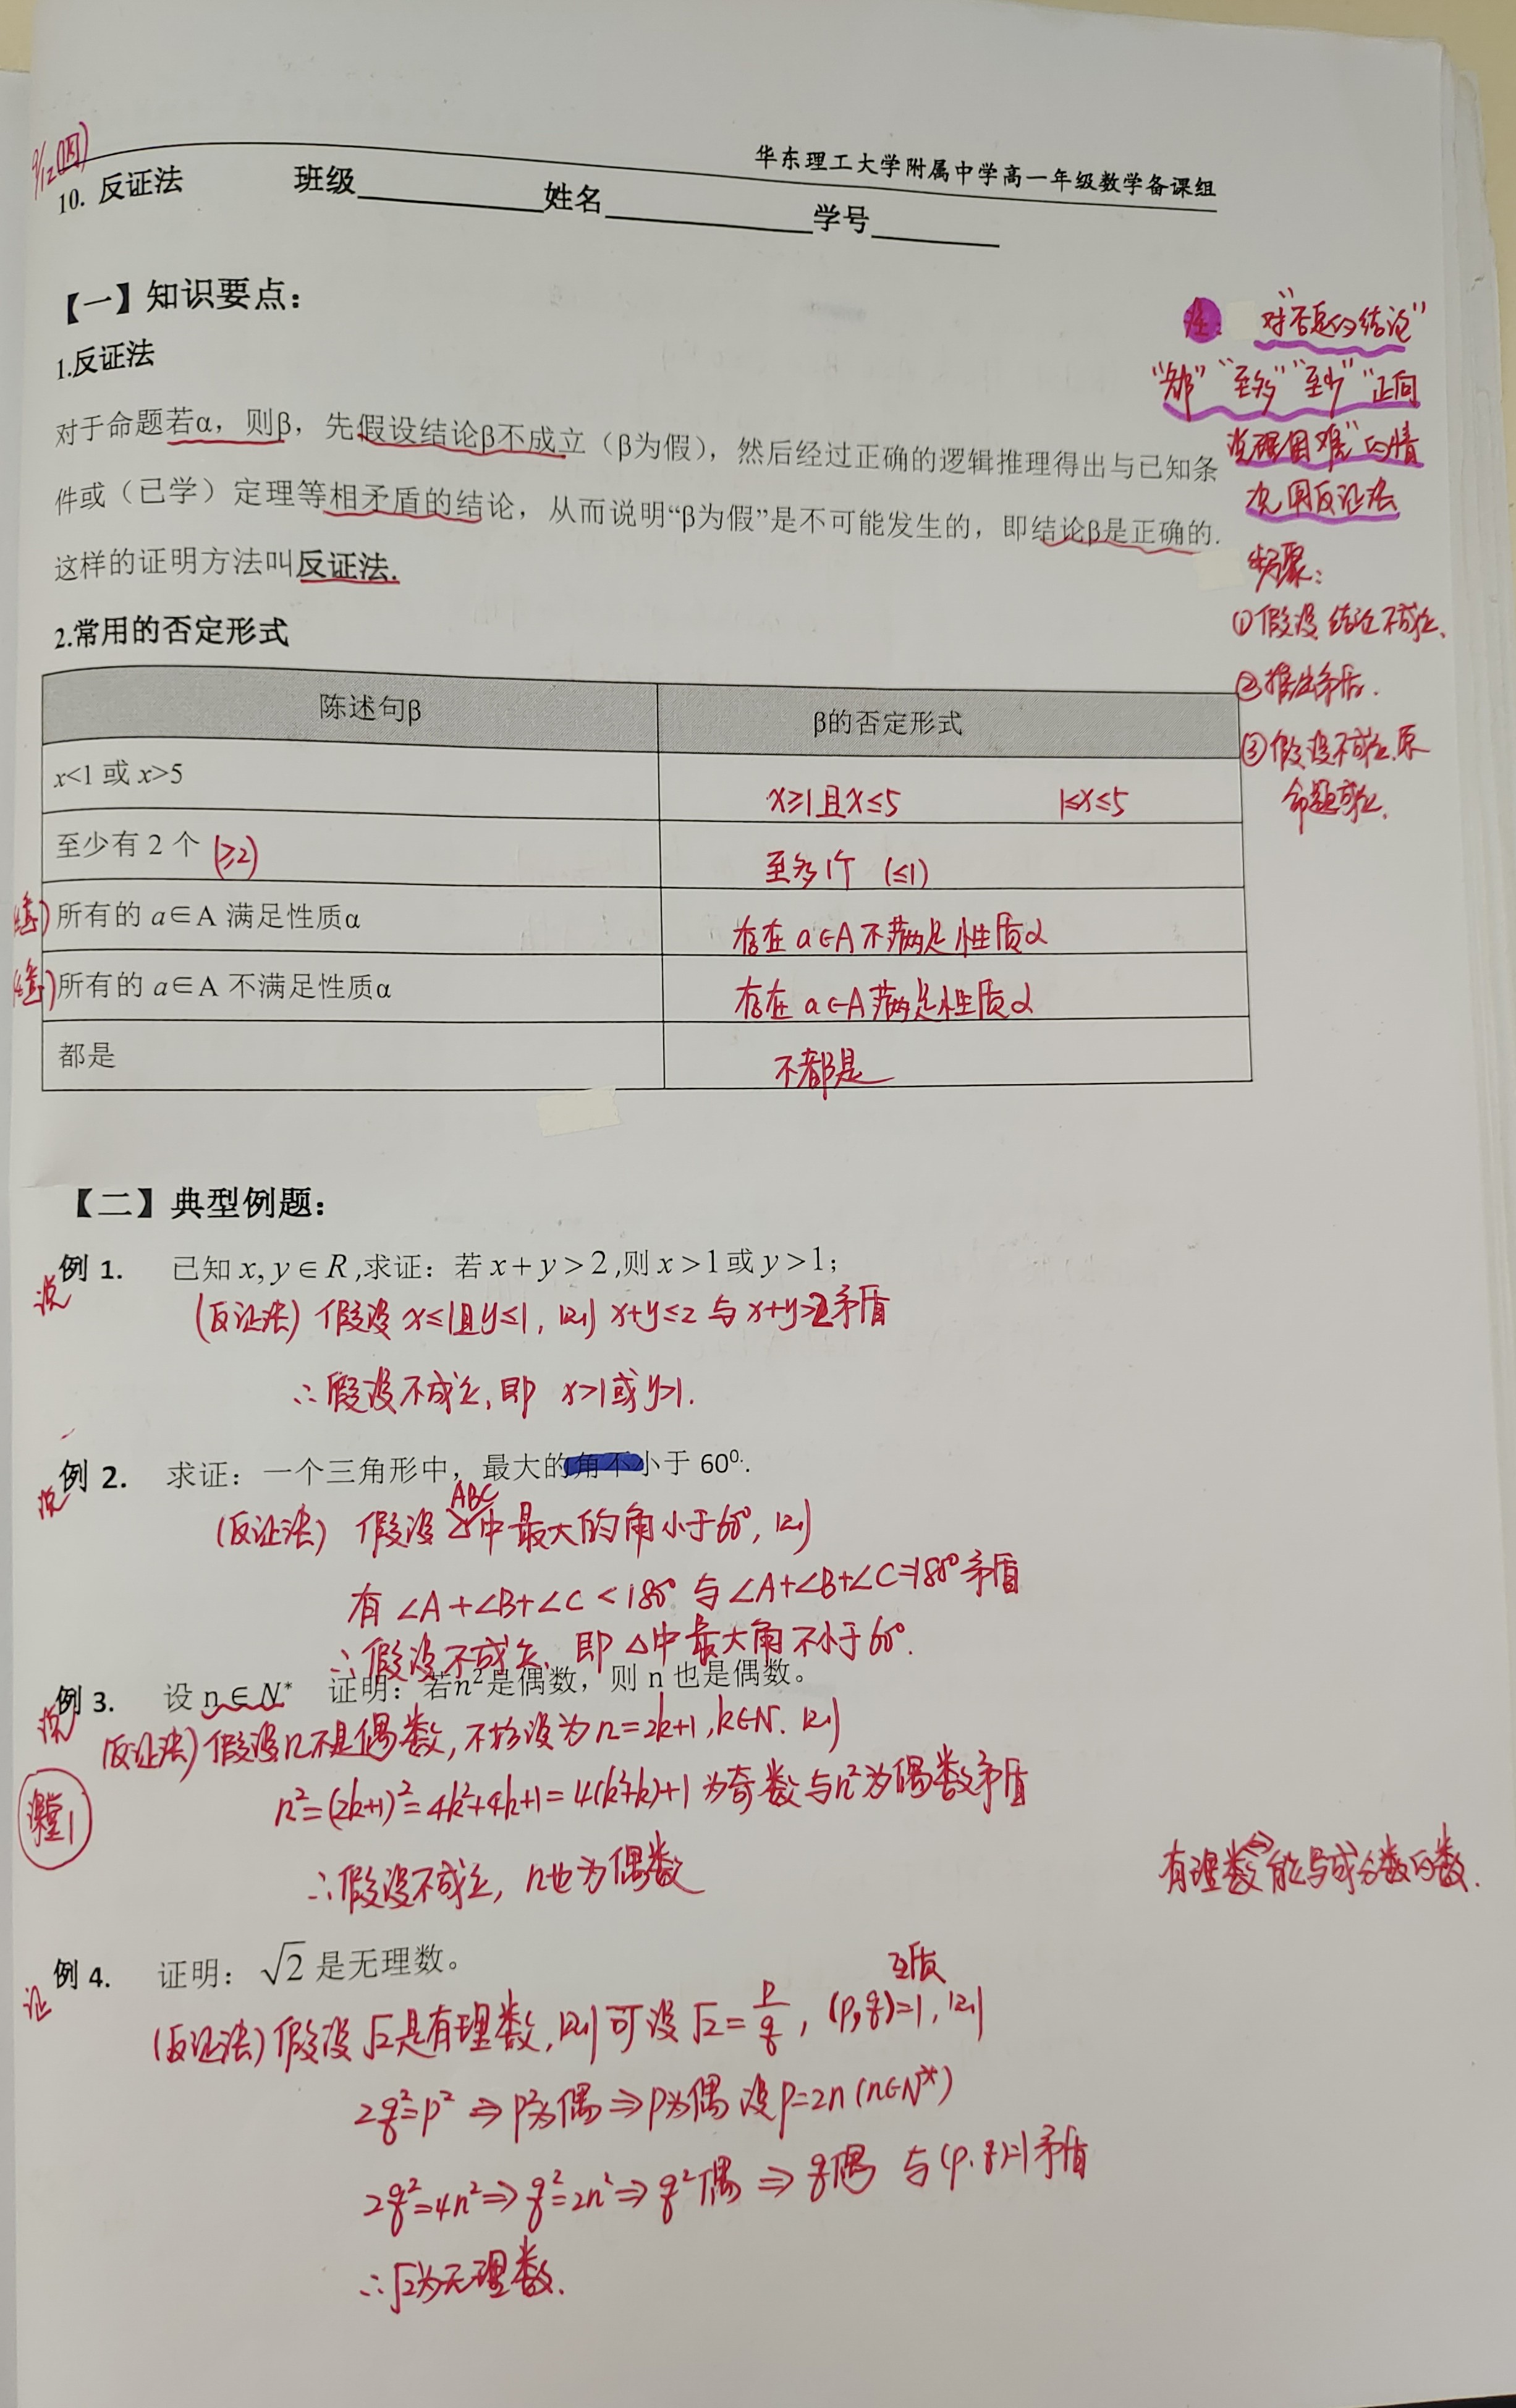 9/12(四)
华东理工大学附属中学高一年级数学备课组
10. 反证法 班级 姓名 学号
【一】知识要点：
1.反证法
对于命题若α，则β，先假设结论β不成立（β为假），然后经过正确的逻辑推理得出与已知条
件或（已学）定理等相矛盾的结论，从而说明“β为假”是不可能发生的，即结论β是正确的.
这样的证明方法叫反证法.
注： 对“否定的结论”
“都”“至多”“至少”“正向
说理困难”的情
况用反证法
步骤：
①假设结论不成立、
②推出矛盾.
③假设不成立.原
命题成立.
2.常用的否定形式
陈述句β β的否定形式
x<1 或 x>5 x≥1且x≤5 1≤x≤5
至少有 2 个 (≥2) 至多1个 (≤1)
所有的 a∈A 满足性质α 存在 a∈A 不满足性质α
所有的 a∈A 不满足性质α 存在 a∈A 满足性质α
都是 不都是
【二】典型例题：
例 1. 已知 x, y ∈ R ,求证：若 x + y > 2 ,则 x > 1 或 y > 1；
(反证法) 假设 x≤1且y≤1, 则 x+y≤2 与 x+y>2矛盾
∴假设不成立, 即 x>1或y>1.
例 2. 求证：一个三角形中，最大的角不小于 60⁰.
(反证法) 假设△ABC中最大的角小于60°, 则
有 ∠A+∠B+∠C<180° 与 ∠A+∠B+∠C=180°矛盾
∴假设不成立、即 △中最大角不小于60°.
例 3. 设 n ∈ N* 证明：若n²是偶数，则 n 也是偶数。
(反证法) 假设n不是偶数, 不妨设为 n=2k+1, k∈N. 则
n²=(2k+1)²=4k²+4k+1=4(k²+k)+1 为奇数与n²为偶数矛盾
课堂1
∴假设不成立, n也为偶数
有理数⇔能写成分数的数.
例 4. 证明：√2 是无理数。
证
(反证法) 假设√2是有理数, 则可设√2=p/q, (p,q)=1, 则
互质
2q²=p² ⇒ p²为偶 ⇒ p为偶 设p=2n (n∈N*)
2q²=4n² ⇒ q²=2n² ⇒ q²偶 ⇒ q偶 与(p.q)=1矛盾
∴√2为无理数.